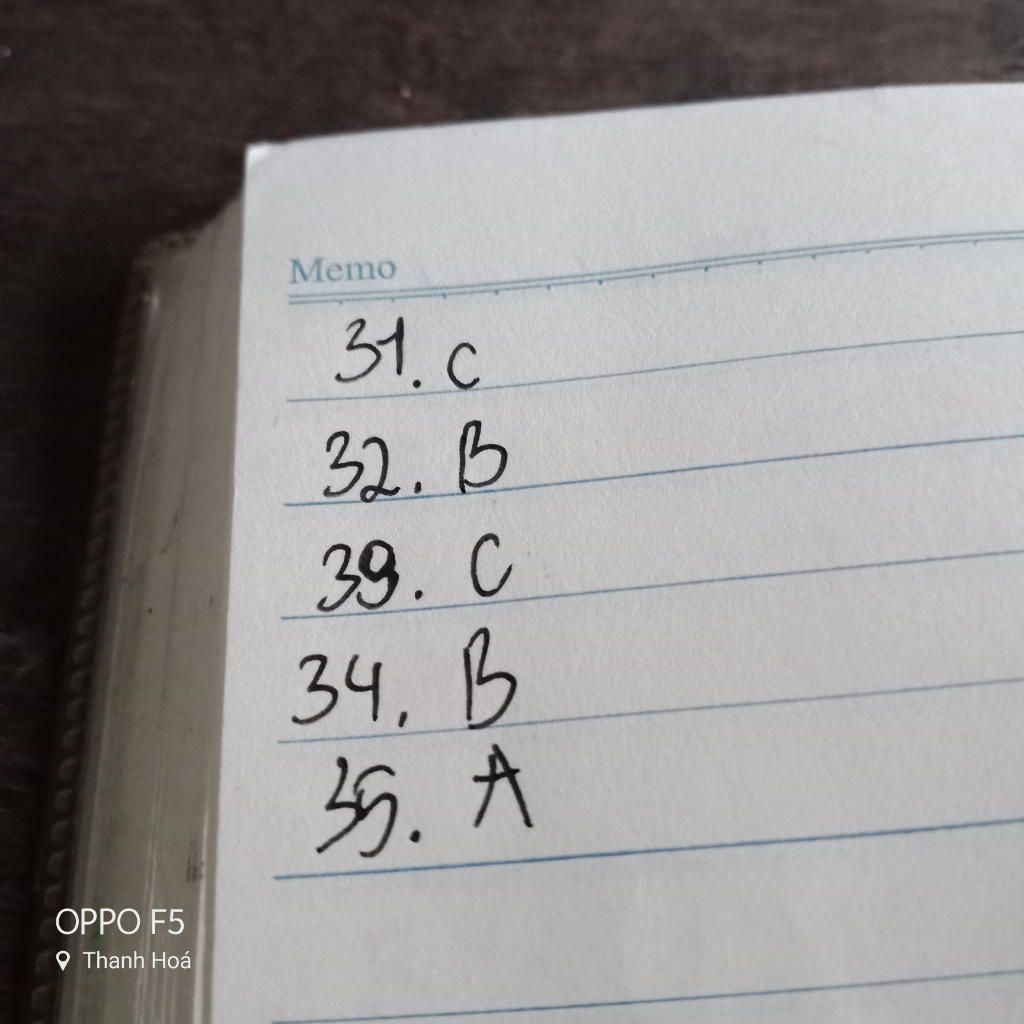 Memo
31. C
32. B
39. C
34. B
35. A
OPPO F5
Thanh Hoá